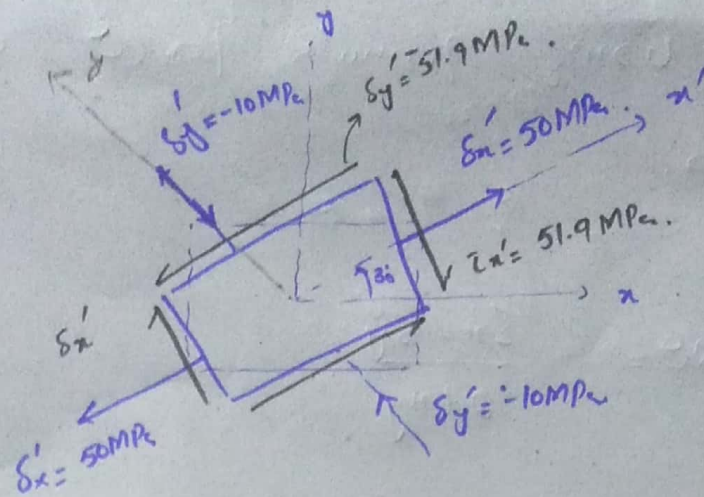 y
y'
δy' = 51.9 MPa.
δy' = -10 MPa
δx' = 50 MPa.
x'
τx' = 51.9 MPa.
30
x
δx'
δy' = -10 MPa
δx' = 50 MPa